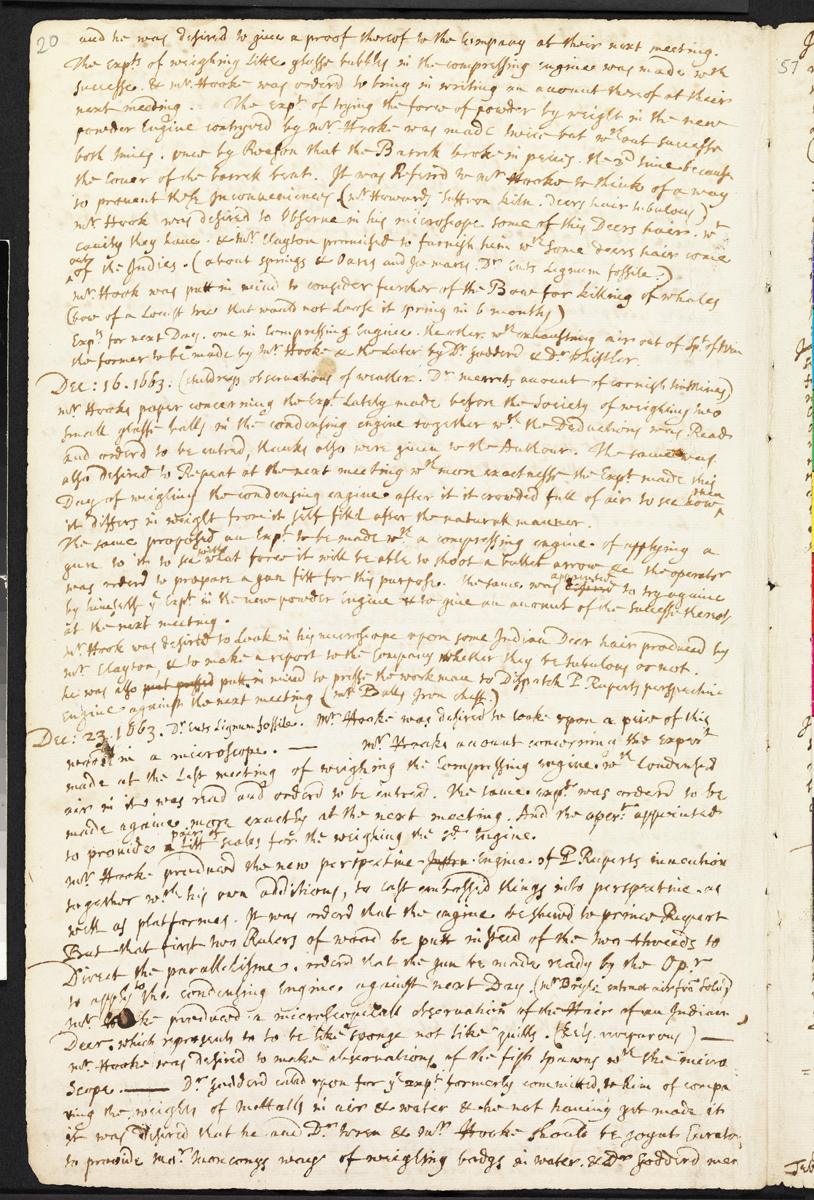 20 and he was desired to give a proof thereof to the Company at their next meeting.
The expts of weighing little glasse bubbles in the compressing engine was made wth
successe. & mr. Hooke was orderd to bring in writing an account thereof at their
next meeting. The Expt. of trying the force of powder by weight in the new
powder Engine contryved by mr. Hooke was made twice but wthout successe
both times. once by Reason that the Barrk broke in peices. the 2d time because
the Cover of the barrek bent. It was Referrd to mr. Hooke to think of a way
to prevent these Inconveniences (mr. Howards saffron kiln. Deers hair tubulous)
mr. Hook was desired to Observe in his microscope some of this Deers hair. wt
cavity they have. & mr. Clayton promised to furnish him wth some deers hair come
out of the Indies. (about springs & Oares and Ice mares. Dr. Ents Lignum fossile.)
mr. Hook was putt in mind to consider further of the Bow for killing of whales
(bow of a Locust tree that would not loose its spring in 6 months)
Expts for next Day. one in Compressing Engine. the other wth exhausting air out of Spt. of Wine
the former to be made by mr. Hooke & the Later by Dr. Godderd & Dr. Whistler.
Dec: 16. 1663. (childreys observations of weather. Dr. merrets account of cornish tin mines)
mr. Hooks paper concerning the Expt. lately made before the Society of weighing two
small glasse balls in the condensing engine together wth the Deductions was Read
and orderd to be entred, thanks also were given to the Author. The same was
also desired to Repeat at the next meeting wth more exactnesse the Expt. made this
Day of weighing the condensing engine after it is crowded full of air to see how much
it differs in weight from it self filld after the naturall manner.
The same proposed an Expt. to be made wth a compressing engine. of applying a
gun to it to see with what force it will be able to shoot a bullet arrow &c the operator
was orderd to prepare a gun fitt for this purpose. the same was appointed to try againe
by himself ye Expt. in the new powder Engine & to give an account of the successe thereof
at the next meeting.
mr. Hook was desired to Look in his microscope upon some Indian Deer hair produced by
mr. Clayton, & to make a report to the Company whether they be tubulous or not.
he was also put putt in mind to presse the workman to Dispatch P. Ruperts perspective
Engine against the next meeting (mr. Balls Iron chest.)
Dec: 23. 1663. Dr. Ents Lignum fossile. Mr. Hooke was desired to looke upon a piece of this
wood in a microscope. — mr. Hooks account concerning the Experit.
made at the Last meeting of weighing the Compressing engine wth Condensed
air in it was read and orderd to be entred. the same Expt. was orderd to be
made againe more exactly at the next meeting. And the opert. appointed
to provide a pair of fitt scales for the weighing the sd. Engine.
mr. Hooke produced the new perspective Engine of P. Ruperts invention
together wth his own additions, to cast embossed things into perspective as
well as platformes. It was orderd that the engine be shewd to prince Rupert
But that first two Rulers of wood be putt insteed of the two threeds to
Direct the parallelisme. orderd that the gun be made ready by the Opr.
to apply to the condensing Engine against next Day. (mr. Boyle extract air from Solids)
mr. Hooke produced a microscopicall observation of the Hair of an Indian
Deer. which represents to be like sponge not like quills. (Eels viviparous) —
mr. Hooke was desired to make observations of the fish spawns wth the micro
scope. — Dr. Godderd calld upon for ye expt. formerly committed to him of compa
ring the weights of mettalls in air & water & he not having yet made it
it was desired that he and Dr. Wren & mr. Hooke should be joynt Curators
to provide mr. monconys ways of weighing bodys in water. & Dr. Godderd men
57